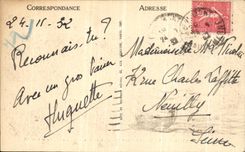 CORRESPONDANCE
ADRESSE
24-11-32
Reconnais-tu?
Avec un gros baiser
Huguette
Mademoiselle M. Nicolas
12 rue Charles Laffitte
Neuilly
Seine